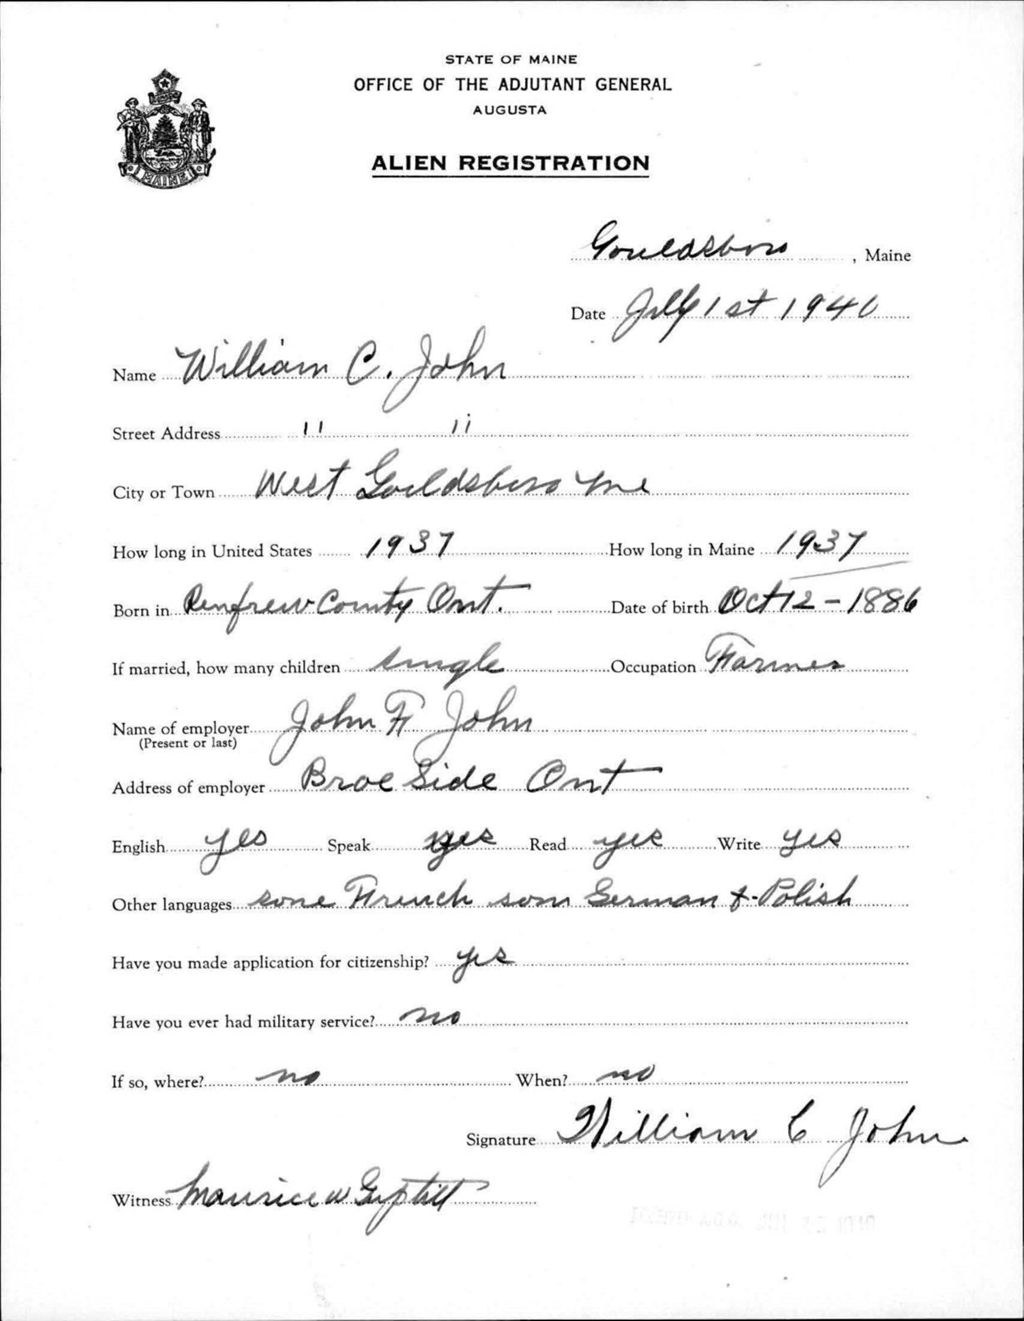 STATE OF MAINE
OFFICE OF THE ADJUTANT GENERAL
AUGUSTA
MAINE
ALIEN REGISTRATION
Gouldsboro, Maine
Date July 1st 1940
Name William C. John
Street Address " "
City or Town West Gouldsboro Me
How long in United States 1937 How long in Maine 1937
Born in Renfrew County Ont. Date of birth Oct 12 - 1886
If married, how many children single Occupation Farmer
Name of employer John F John
(Present or last)
Address of employer Brae Side Ont
English yes Speak yes Read yes Write yes
Other languages some French som German & Polish
Have you made application for citizenship? yes
Have you ever had military service? no
If so, where? no When? no
Signature William C John
Witness Maurice W